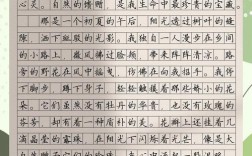 心灵。自然的馈赠，是我生命中最珍贵的宝藏
那是一个初夏的午后，阳光透过树叶的缝
隙，洒下斑驳的光影。我独自一人漫步在乡间的
小路上，微风拂过脸颊，带来阵阵清凉。路
旁的野花在风中摇曳，仿佛在向我招手。我停
下脚步，蹲下身子，轻轻触碰着那些娇小的花
朵。它们虽然没有牡丹的华贵，也没有玫瑰的
芬芳，却有着一种质朴的美。花瓣上还挂着几
滴晶莹的露珠，在阳光下闪烁着光芒，像是大